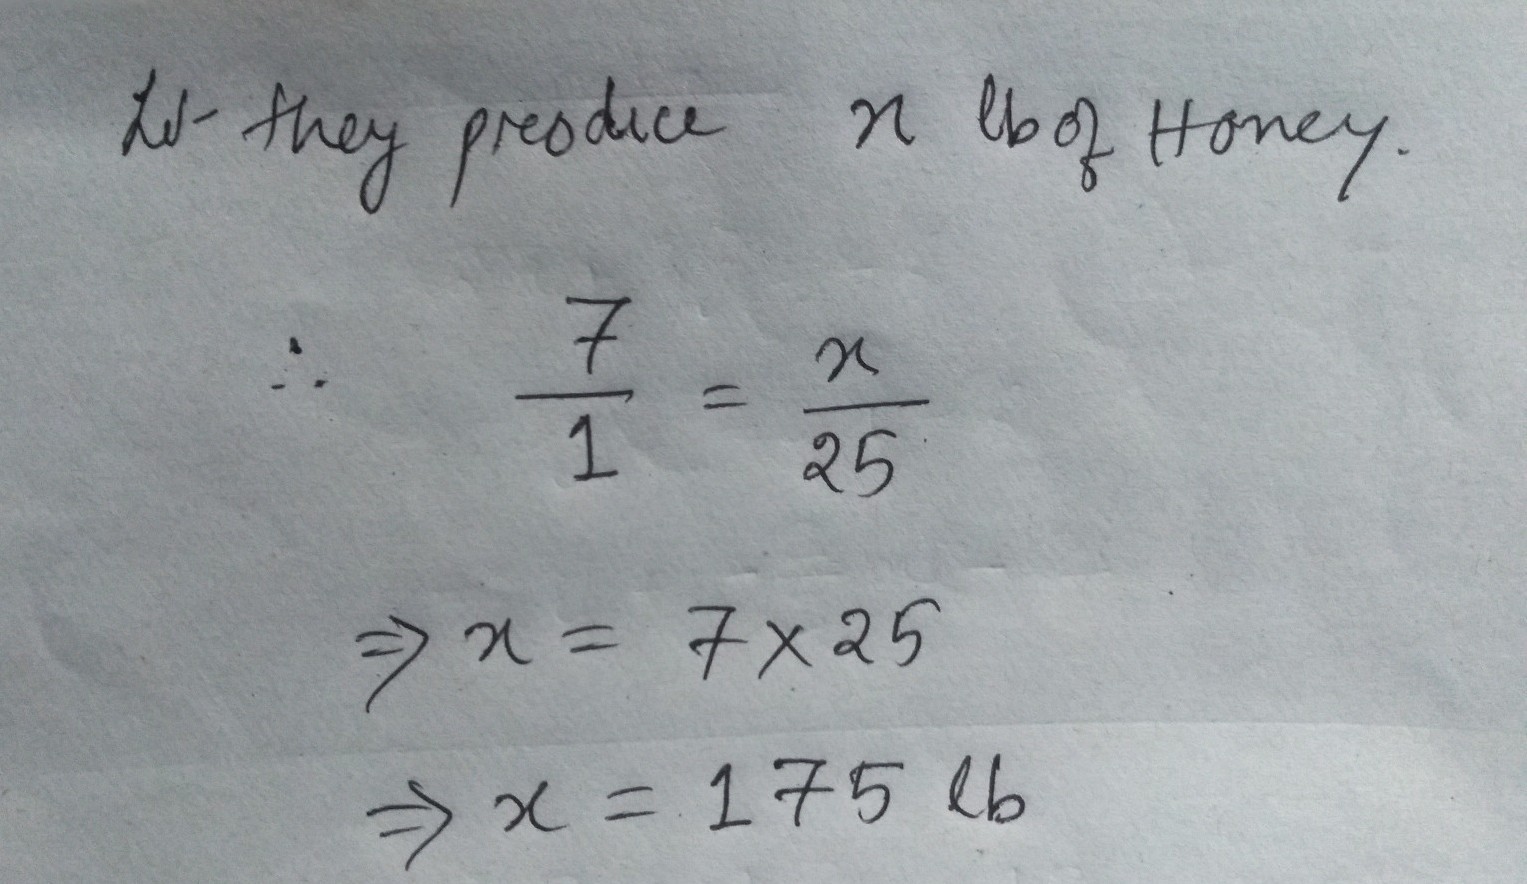 Let they preoduce x lb of Honey.
∴ 7/1 = x/25
⇒ x = 7 × 25
⇒ x = 175 lb